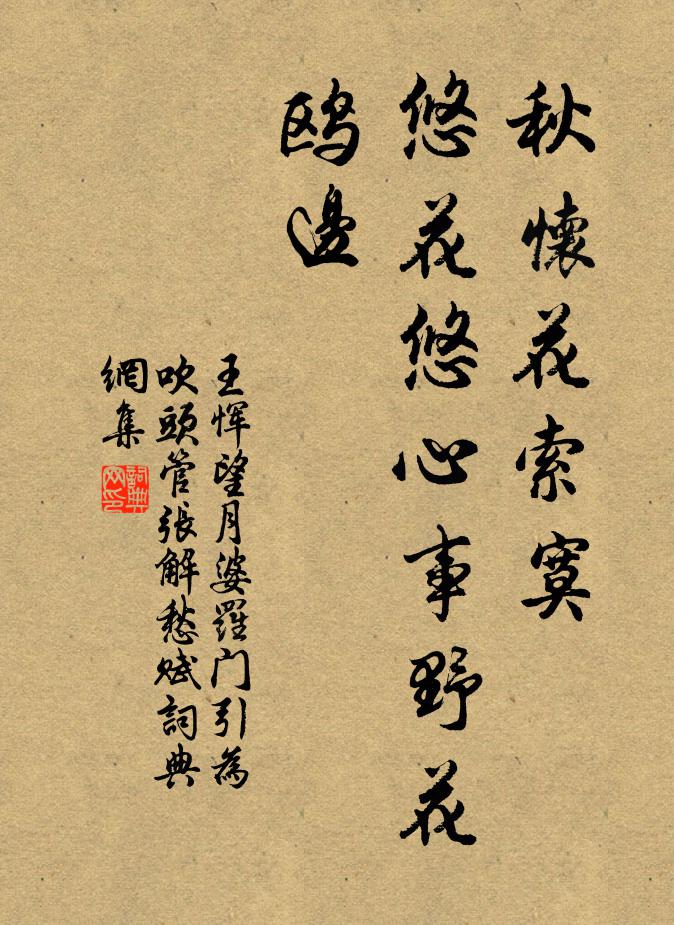 秋懷花索寞
悠花悠心事野花
鸥邊
王恽望月婆羅门引為
吹頭管張解愁賦詞典
網集
詞典
网印